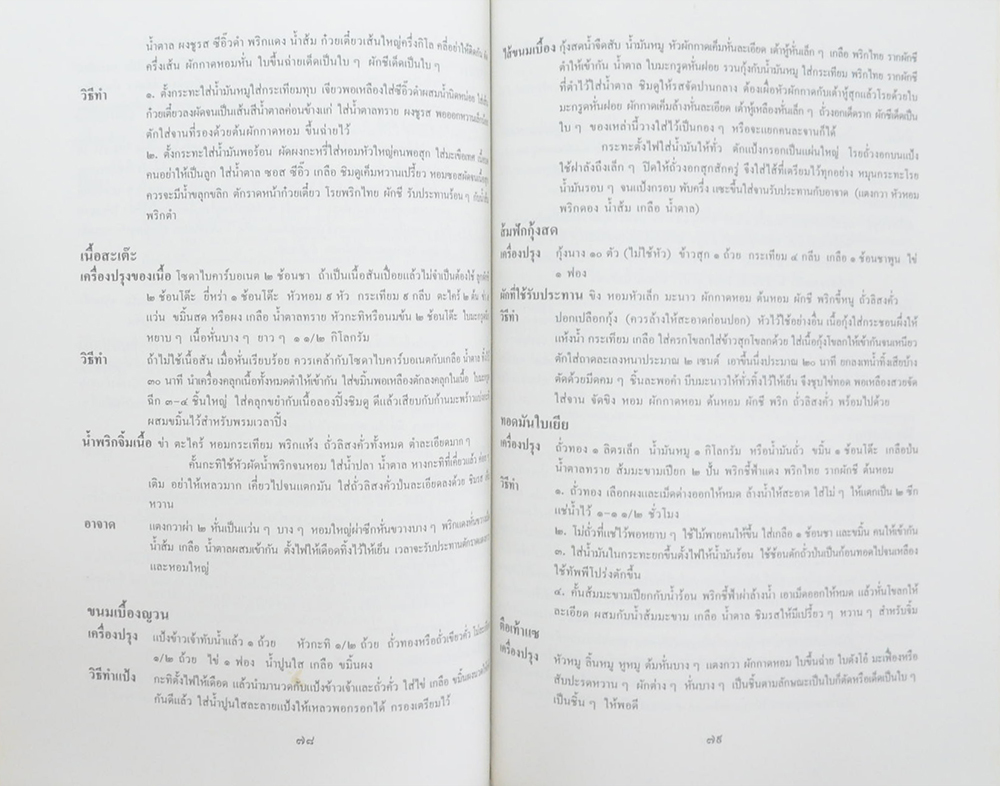 น้ำตาล ผงชูรส ซีอิ๊วดำ พริกแดง น้ำส้ม ก๋วยเตี๋ยวเส้นใหญ่ครึ่งกิโล คลี่อย่าให้ติดกัน
ครึ่งเส้น ผักกาดหอมหั่น ใบขึ้นฉ่ายเด็ดเป็นใบ ๆ ผักชีเด็ดเป็นใบ ๆ
วิธีทำ ๑. ตั้งกระทะใส่น้ำมันหมูใส่กระเทียมทุบ เจียวพอเหลืองใส่ซีอิ๊วดำผสมน้ำนิดหน่อย
ก๋วยเตี๋ยวลงผัดจนเป็นเส้นสีน้ำตาลค่อนข้างแก่ ใส่น้ำตาลทราย ผงชูรส พอออกหวานเล็กน้อย
ตักใส่จานที่รองด้วยต้นผักกาดหอม ขึ้นฉ่ายไว้
๒. ตั้งกระทะใส่น้ำมันพอร้อน ผัดผงกะหรี่ใส่หอมหัวใหญ่คนพอสุก ใส่มะเขือเทศ
คนอย่าให้เป็นลูก ใส่น้ำตาล ซอส ซีอิ๊ว เกลือ ชิมดูเค็มหวานเปรี้ยว หอมซอสผัดจนเนื้อสุก
ควรจะมีน้ำขลุกขลิก ตักราดหน้าก๋วยเตี๋ยว โรยพริกไทย ผักชี รับประทานร้อน ๆ กับน้ำส้ม
พริกดำ
เนื้อสะเต๊ะ
เครื่องปรุงของเนื้อ โซดาไบคาร์บอเนต ๒ ช้อนชา ถ้าเป็นเนื้อสันเปื่อยแล้วไม่จำเป็นต้องใช้
๒ ช้อนโต๊ะ ยี่หร่า ๑ ช้อนโต๊ะ หัวหอม ๙ หัว กระเทียม ๙ กลีบ ตะไคร้ ๒ ต้น
แว่น ขมิ้นสด หรือผง เกลือ น้ำตาลทราย หัวกะทิหรือนมข้น ๒ ช้อนโต๊ะ
หยาบ ๆ เนื้อหั่นบาง ๆ ยาว ๆ ๑ ๑/๒ กิโลกรัม
วิธีทำ ถ้าไม่ใช้เนื้อสัน เมื่อหั่นเรียบร้อย ควรเคล้ากับโซดาไบคาร์บอเนตกับเกลือ น้ำตาล
๓๐ นาที นำเครื่องคลุกเนื้อทั้งหมดตำให้เข้ากัน ใส่ขมิ้นพอเหลืองตักลงคลุกในเนื้อ
ฉีก ๓-๔ ชิ้นใหญ่ ใส่คลุกขยำกับเนื้อลองปิ้งชิมดู ดีแล้วเสียบกับก้านมะพร้าว
ผสมขมิ้นไว้สำหรับพรมเวลาปิ้ง
น้ำพริกจิ้มเนื้อ ข่า ตะไคร้ หอมกระเทียม พริกแห้ง ถั่วลิสงคั่วทั้งหมด ตำละเอียดมาก ๆ
คั้นกะทิใช้หัวผัดน้ำพริกจนหอม ใส่น้ำปลา น้ำตาล หางกะทิที่เคี่ยวแล้ว
เติม อย่าให้เหลวมาก เคี่ยวไปจนแตกมัน ใส่ถั่วลิสงคั่วป่นละเอียดลงด้วย ชิมรส
หวาน
อาจาด แตงกวาผ่า ๒ หั่นเป็นแว่น ๆ บาง ๆ หอมใหญ่ผ่าซีกหั่นขวางบาง ๆ พริกแดงหั่น
น้ำส้ม เกลือ น้ำตาลผสมเข้ากัน ตั้งไฟให้เดือดทิ้งไว้ให้เย็น เวลาจะรับประทานตักราดแตงกวา
และหอมใหญ่
ขนมเบื้องญวน
เครื่องปรุง แป้งข้าวเจ้าทับน้ำแล้ว ๑ ถ้วย หัวกะทิ ๑/๒ ถ้วย ถั่วทองหรือถั่วเขียวคั่ว
๑/๒ ถ้วย ไข่ ๑ ฟอง น้ำปูนใส เกลือ ขมิ้นผง
วิธีทำแป้ง กะทิตั้งไฟให้เดือด แล้วนำมานวดกับแป้งข้าวเจ้าและถั่วคั่ว ใส่ไข่ เกลือ ขมิ้นผง
กันดีแล้ว ใส่น้ำปูนใสละลายแป้งให้เหลวพอกรอกได้ กรองเตรียมไว้
๗๘
ไส้ขนมเบื้อง กุ้งสดน้ำจืดสับ น้ำมันหมู หัวผักกาดเค็มหั่นละเอียด เต้าหู้หั่นเล็ก ๆ เกลือ พริกไทย รากผักชี
ตำให้เข้ากัน น้ำตาล ใบมะกรูดหั่นฝอย รวนกุ้งกับน้ำมันหมู ใส่กระเทียม พริกไทย รากผักชี
ที่ตำไว้ใส่น้ำตาล ชิมดูให้รสจัดปานกลาง ต้องเผื่อหัวผักกาดกับเต้าหู้สุกแล้วโรยด้วยใบ
มะกรูดหั่นฝอย ผักกาดเค็มล้างหั่นละเอียด เต้าหู้เหลืองหั่นเล็ก ๆ ถั่วงอกเด็ดราก ผักชีเด็ดเป็น
ใบ ๆ ของเหล่านี้วางใส่ไว้เป็นกอง ๆ หรือจะแยกคนละจานก็ได้
กระทะตั้งไฟใส่น้ำมันให้ทั่ว ตักแป้งกรอกเป็นแผ่นใหญ่ โรยถั่วงอกบนแป้ง
ใช้ฝาละมีเล็ก ๆ ปิดให้ถั่วงอกสุกสักครู่ จึงใส่ไส้ที่เตรียมไว้ทุกอย่าง หมุนกระทะโรย
น้ำมันรอบ ๆ จนแป้งกรอบ พับครึ่ง แซะขึ้นใส่จานรับประทานกับอาจาด (แตงกวา หัวหอม
พริกดอง น้ำส้ม เกลือ น้ำตาล)
ส้มฟักกุ้งสด
เครื่องปรุง กุ้งนาง ๑๐ ตัว (ไม่ใช้หัว) ข้าวสุก ๑ ถ้วย กระเทียม ๔ กลีบ เกลือ ๑ ช้อนชาพูน ไข่
๑ ฟอง
ผักที่ใช้รับประทาน ขิง หอมหัวเล็ก มะนาว ผักกาดหอม ต้นหอม ผักชี พริกขี้หนู ถั่วลิสงคั่ว
วิธีทำ ปอกเปลือกกุ้ง (ควรล้างให้สะอาดก่อนปอก) หัวไว้ใช้อย่างอื่น เนื้อกุ้งใส่กระชอนผึ่งให้
แห้งน้ำ กระเทียม เกลือ ใส่ครกโขลกใส่ข้าวสุกโขลกด้วย ใส่เนื้อกุ้งโขลกให้เข้ากันจนเหนียว
ตักใส่ถาดและลงหนาประมาณ ๒ เซนต์ เอาขึ้นนึ่งประมาณ ๒๐ นาที ยกลงเทน้ำทิ้งเสียบ้าง
ตัดด้วยมีดคม ๆ ชิ้นละพอคำ บีบมะนาวให้ทั่วทิ้งไว้ให้เย็น จึงชุบไข่ทอด พอเหลืองสวยจัด
ใส่จาน จัดขิง หอม ผักกาดหอม ต้นหอม ผักชี พริก ถั่วลิสงคั่ว พร้อมไปด้วย
ทอดมันไบเยีย
เครื่องปรุง ถั่วทอง ๑ ลิตรเล็ก น้ำมันหมู ๑ กิโลกรัม หรือน้ำมันถั่ว ขมิ้น ๑ ช้อนโต๊ะ เกลือป่น
น้ำตาลทราย ส้มมะขามเปียก ๒ ปั้น พริกชี้ฟ้าแดง พริกไทย รากผักชี ต้นหอม
วิธีทำ ๑. ถั่วทอง เลือกผงและเม็ดต่างออกให้หมด ล้างน้ำให้สะอาด ใส่โม่ ๆ ให้แตกเป็น ๒ ซีก
แช่น้ำไว้ ๑-๑ ๑/๒ ชั่วโมง
๒. โม่ถั่วที่แช่ไว้พอหยาบ ๆ ใช้ไม้พายคนให้ขึ้น ใส่เกลือ ๑ ช้อนชา และขมิ้น คนให้เข้ากัน
๓. ใส่น้ำมันในกระทะยกขึ้นตั้งไฟให้น้ำมันร้อน ใช้ช้อนตักถั่วปั่นเป็นก้อนทอดไปจนเหลือง
ใช้ทัพพีโปร่งตักขึ้น
๔. คั้นส้มมะขามเปียกกับน้ำร้อน พริกชี้ฟ้าผ่าล้างน้ำ เอาเม็ดออกให้หมด แล้วหั่นโขลกให้
ละเอียด ผสมกับน้ำส้มมะขาม เกลือ น้ำตาล ชิมรสให้มีเปรี้ยว ๆ หวาน ๆ สำหรับจิ้ม
ตือเท้าแซ
เครื่องปรุง หัวหมู ลิ้นหมู หูหมู ต้มหั่นบาง ๆ แตงกวา ผักกาดหอม ใบขึ้นฉ่าย ใบตังโอ๋ มะเฟืองหรือ
สับปะรดหวาน ๆ ผักต่าง ๆ หั่นบาง ๆ เป็นชิ้นตามลักษณะเป็นใบก็ตัดหรือเด็ดเป็นใบ ๆ
เป็นชิ้น ๆ ให้พอดี
๗๙